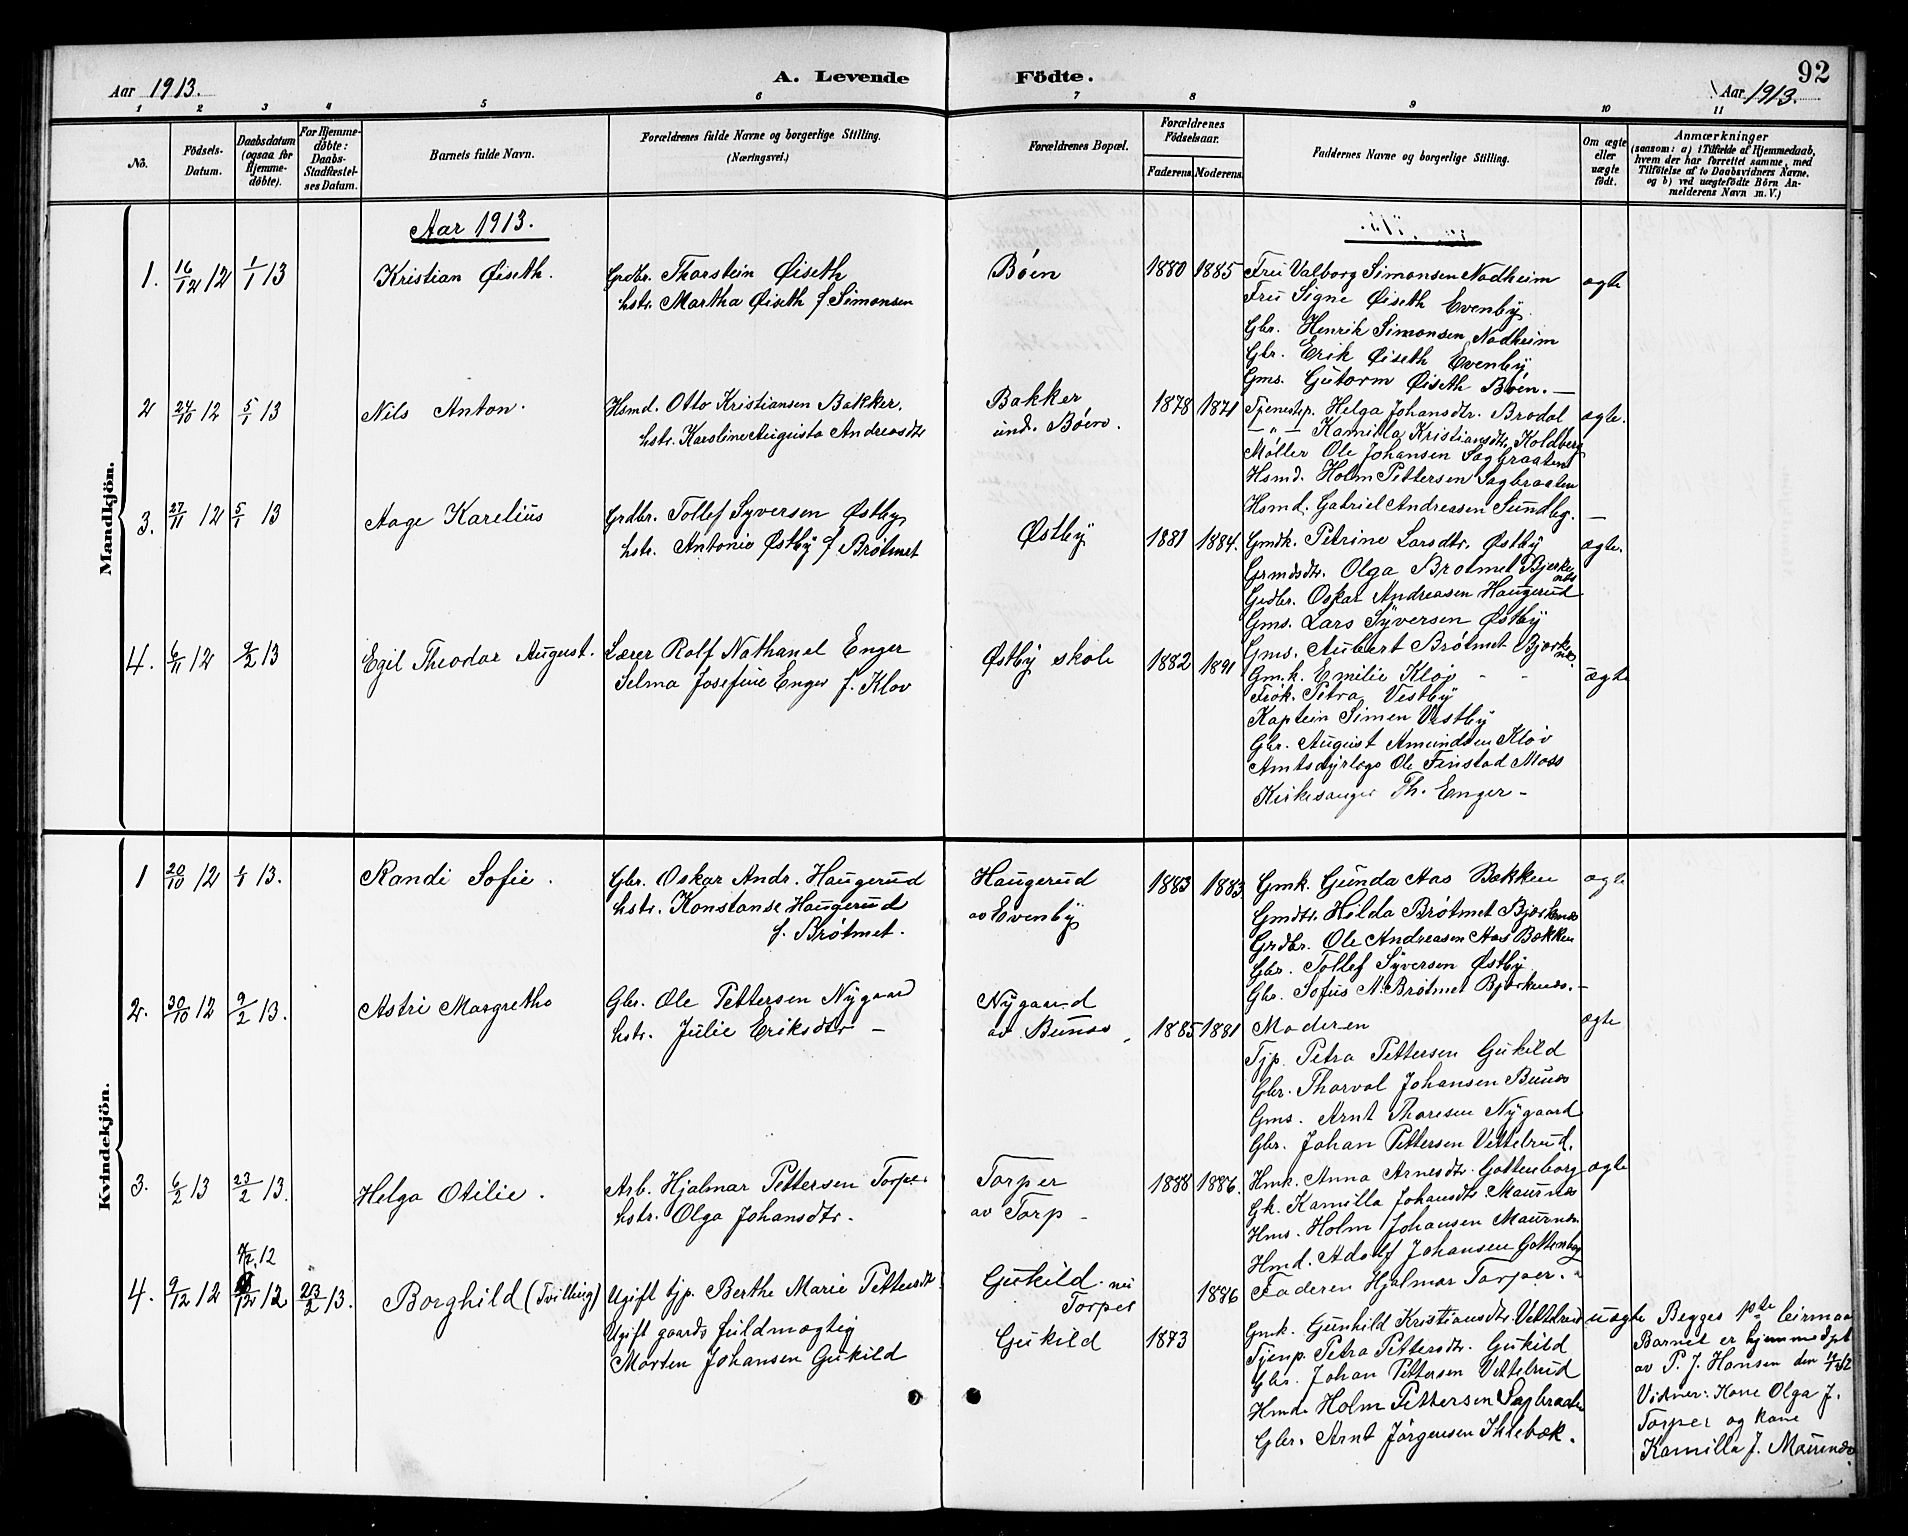 Aar 1913.
A. Levende Födte.
92
Aar 1913.
1 2 3 4 5 6 7 8 9 10 11
No.
Födsels-Datum.
Daabsdatum (ogsaa for Hjemme-döbte).
For Hjemme-döbte: Daabs-Stadfestel-ses Datum.
Barnets fulde Navn.
Forældrenes fulde Navne og borgerlige Stilling. (Næringsvei.)
Forældrenes Bopæl.
Forældrenes Födselsaar.
Faderens. Moderens.
Faddernes Navne og borgerlige Stilling.
Om ægte eller uægte födt.
Anmærkninger
(saasom: a) i Tilfælde af Hjemmedaab, hvem der har forrettet samme, med Tilföielse af to Daabsvidners Navne. og b) ved uægtefödte Börn An-melderens Navn m. V.)
Aar 1913.
Mandkjön.
1. 16/12 12 1/1 13 Kristian Øiseth.
Grdbr. Thorstein Øiseth
hstr. Martha Øiseth f Simonsen
Böen 1880 1885
Fru Valborg Simonsen Nadheim
Fru Signe Øiseth Evenby.
Gbr. Henrik Simonsen Nadheim
Gbr. Erik Øiseth Evenby
Gms. Gutorm Øiseth Böen. —
ægte
2 24/10 12 5/1 13 Nils Anton.
Hsmd. Otto Kristiansen Bakker.
hstr. Karoline Augusta Andreasdtr
Bakker
und. Böen.
1878 1871
Tjenestep. Helga Johansdtr. Brodal
— " — Kamilla Kristiansdtr. Koldberg
Møller Ole Johansen Sagbraaten
Hsmd. Holm Pettersen Sagbraaten
Hsmd. Gabriel Andreasen Sundbg. —
ægte.
3. 27/11 12 5/1 13 Aage Karelius
Grdbr. Tollef Syversen Østby
hstr. Antonie Østby f Brötmet
Østby 1881 1884.
Gmdk. Petrine Larsdtr. Østby
Grmdsdtr. Olga Brötmet Bjerke
næs
Grdbr. Oskar Andreasen Haugerud
Gms. Lars Syversen Østby
Gms. Aubert Brötmet Bjørk
næs.
ægte.
4. 6/11 12 9/2 13 Egil Theodor August.
Lærer Rolf Nathanel Enger
Selma Josefine Enger f. Klov
Østby skole 1882 1891
Gm.k. Emilie Klov - -
Frök. Petra Vestby
Kaptein Simen Vestby
Gbr. August Amundsen Klov
Amtsdyrlæge Ole Finstad Moss
Kirkesanger Th. Enger -
ægte
Kvindekjön.
1 20/10 12 6/1 13. Randi Sofie.
Gbr. Oskar Andr. Haugerud
hstr. Konstanse Haugerud
f. Brötmet.
Haugerud
av Evenby
1883 1883
Gmk. Gunda Aas Bækken
Gmdtr. Hilda Brötmet Bjørknæs
Grdbr. Ole Andreasen Aas Bækken
Gbr. Tollef Syversen Østby
Gbr. Sofus A. Brötmet Bjørknæs. -
ægte
2. 30/10 12 9/2 13. Astri Margrethe
Gbr. Ole Pettersen Nygaard
hstr. Julie Eriksdtr —
Nygaard
av Bunæs
1885 1881
Moderen
Tjp. Petra Pettersen Gukild
Gbr. Thorval Johansen Bunæs
Gms. Arnt Thoresen Nygaard
Gbr. Johan Pettersen Vettelrud.
ægte
3. 6/2 13 23/2 13. Helga Otilie.
Arb. Hjalmar Pettersen Torper
hstr. Olga Johansdtr.
Torper
av Torp -
1888 1886.
Hmk. Anna Arnesdtr. Gottenborg
Gk. Kamilla Johansdtr Maurnæs
Hms. Holm Johansen Maurnæs
Hmd. Adolf Johansen Gottenbog
Faderen Hjalmar Torper. "
ægte
4. 9/12 12 12 /12 12 23/2 13. Borghild (Tvilling)
Ugift tjp. Berthe Marie Pettersdtr
Ugift gaards fuldmægtig
Morten Johansen Gukild
Gukild. nu
Torper
Gukild
1886
1873
Gmk. Gunhild Kristiansdtr. Vettelrud
Tjenp. Petra Pettersdtr. Gukild
Gbr. Johan Pettersen Vettelrud
Hmd. Holm Pettersen Sagbraaten
Gbr. Arnt Jörgensen Ihlebæk.
uægte
Begges 1ste leirmaal
Barnet er hjemmedöpt
av P. J. Hansen den
Vidner: Kone Olga J.
Torper og kone
Kamilla J. Maurnæs.